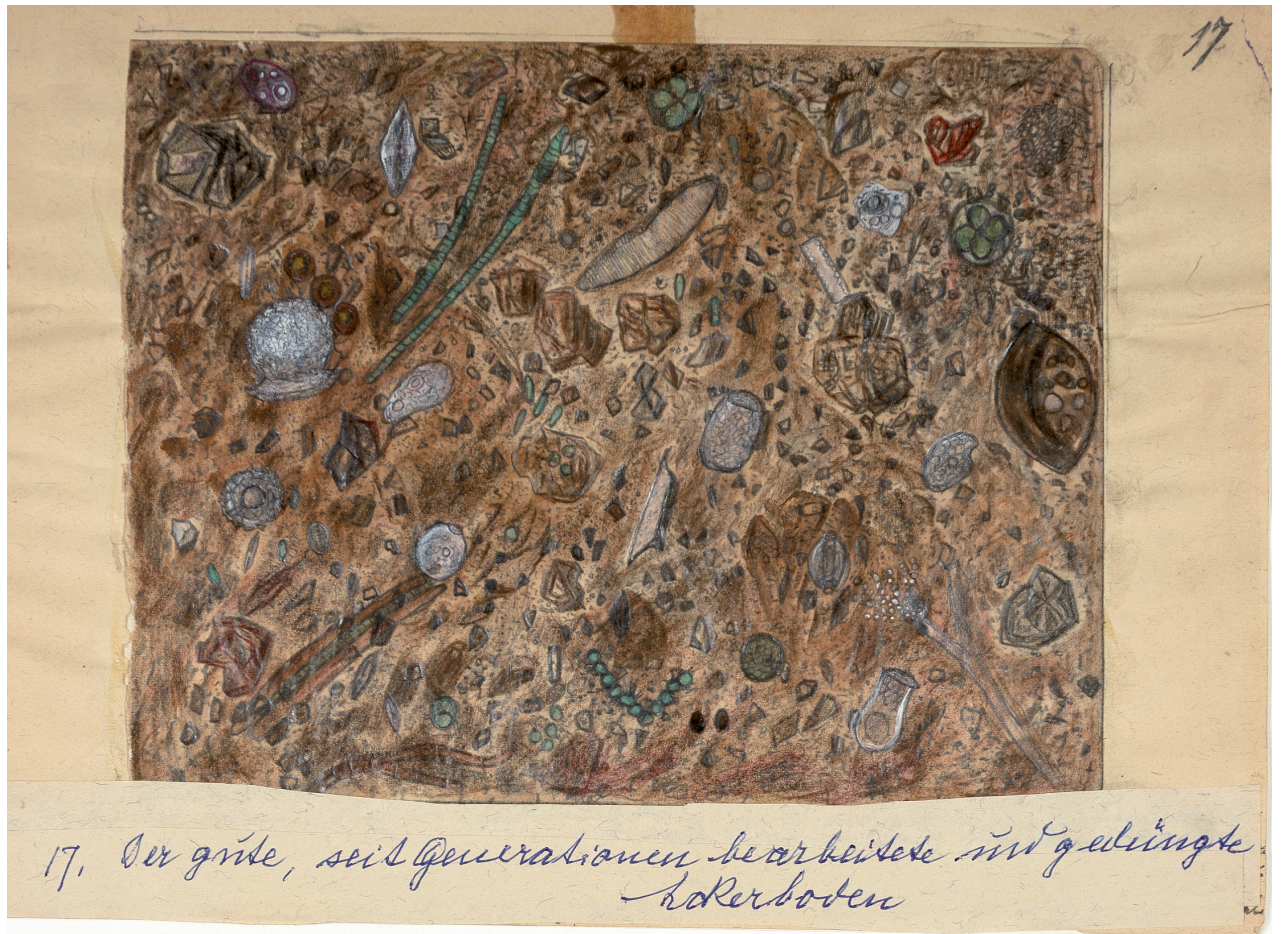 17
17. Der gute, seit Generationen bearbeitete und gedüngte
Ackerboden